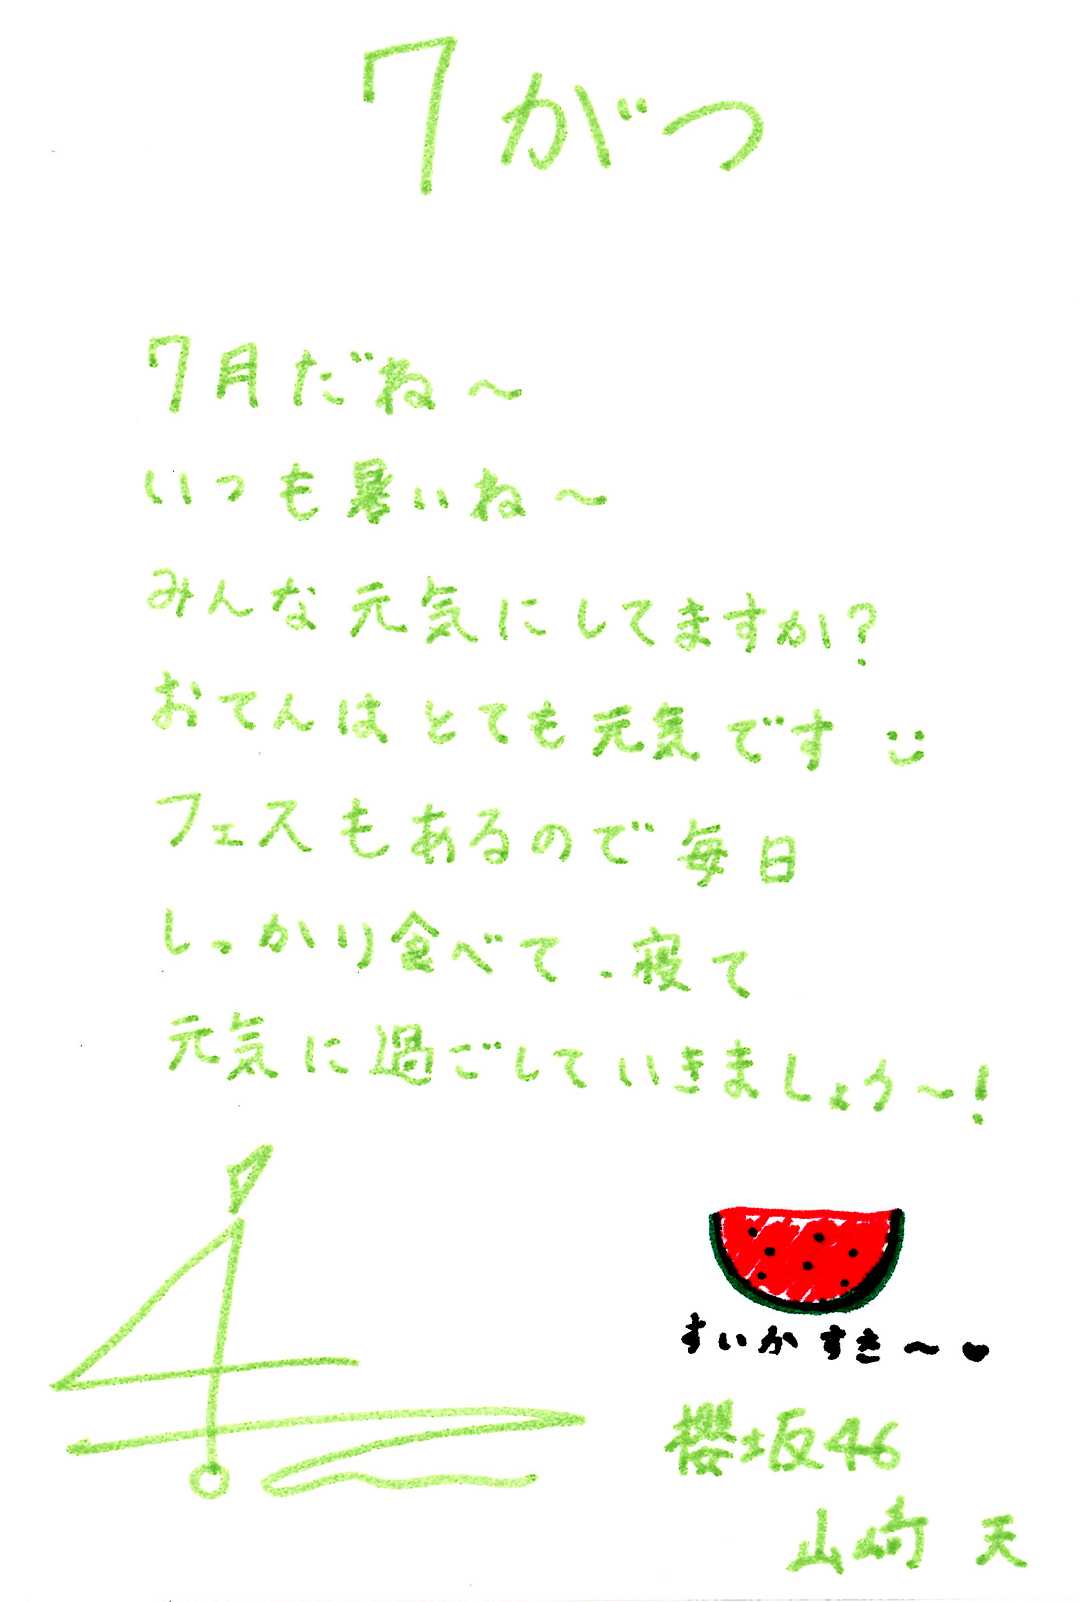 7がつ
7月だね〜
いつも暑いね〜
みんな元気にしてますか?
おてんはとても元気です
フェスもあるので毎日
しっかり食べて、寝て
元気に過ごしていきましょう〜!
すいかすき〜♥
櫻坂46
山﨑 天